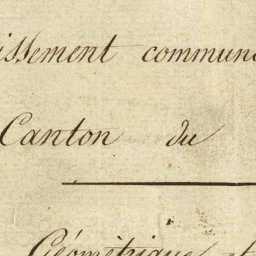 issement commun
Canton du
Géométrique et